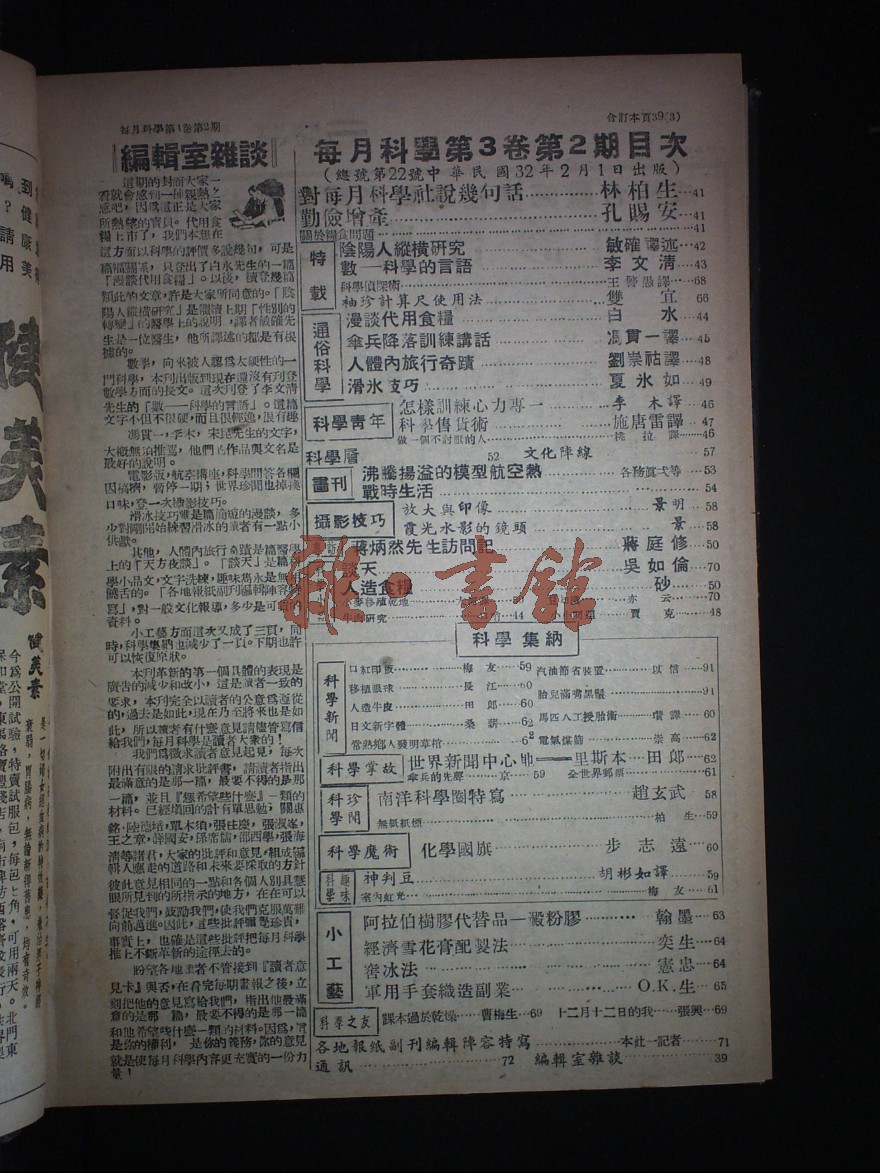 每月科學第1卷第2期
合訂本頁39(3)
編輯室雜談
這期的封面大家一
看就會感到一種親熱之
感吧,因為這正是大家
所熱望的寶貝。代用食
糧上市了,我們本想在
這方面以科學的評價多說幾句,可是
篇幅關系,只登出了白水先生的一篇
「漫談代用食糧」。以後,續登幾篇
類此的文章,許是大家所同意的。「陰
陽人縱橫研究」是繼續上期「性別的
轉變」的醫學上的說明,譯者敏確先
生是一位醫生,他所譯述的都是有根
據的。
數學,向來被人認為太硬性的一
門科學,本刊出版到現在還沒有刊登
數學方面的長文。這次刊登了李文清
先生的「數——科學的言語」。這篇
文字不但不很硬,而且很輕逸,很有趣
大概無須推薦,他們的作品與文名是
最好的說明。
電影版,航空講座,科學問答各欄
因稿擠,暫停一期;世界珍聞也掉換
口味,登一次攝影技巧。
滑冰技巧雖是篇簡短的漫談,多
少對剛開始練習滑冰的讀者有一點小
供獻。
其他,人體內旅行奇蹟是篇醫學
上的「天方夜談」。「談天」是篇科
學小品文,文字洗練,趣味雋永是無庸
饒舌的。「各地報紙副刊編輯陣容特
寫」,對一般文化報導,多少是可貴的
資料。
小工藝方面這次又成了三頁,同
時,科學集納也減少了一頁。下期也許
可以恢復原狀。
本刊革新的第一個具體的表現是
廣告的減少和改小,這是讀者一致的
要求,本刊完全以讀者的公意為遵從
的,過去是如此,現在乃至將來也是如
此,所以讀者有什麼意見請儘管寫信
給我們,每月科學是讀者大衆的!
我們為徵求讀者意見起見,每次
附出有限的請求批評書,請讀者指出
最滿意的是那一篇,最要不得的是那
一篇,並且『您希望些什麼』一類的
輯人應走的道路和未來要採取的方針
彼此意見相同的一點和各個人別具慧
眼所見到的所指示的地方,在在可以
督促我們,鼓勵我們,使我們克服萬難
向前邁進。因此,這些批評彌足珍貴,
事實上,也確是這些批評把每月科學
推上不斷革新的途徑去的。
盼望各地讀者不管接到『讀者意
見卡』與否,在看完每期畫報之後,立
刻把他的意見寫給我們,指出他最滿
意的是那一篇,最要不得的是那一篇
和他希望些什麼一類的材料。因為,這
是你的權利,是你的義務,你的意見
就是使每月科學內容更充實的一份力
量!
每月科學第3卷第2期目次
(總號第22號中華民國32年2月1日出版)
對每月科學社說幾句話……林柏生…41
勤儉增產……孔賜安…41
關於糧食問題……41
特載
陰陽人縱橫研究……敏確譯述…42
數—科學的言語……李文清…43
科學偵探術……譯…68
袖珍計算尺使用法……雙宜 66
通俗科學
漫談代用食糧……白水 44
傘兵降落訓練講話……馮貫一譯 45
人體內旅行奇蹟……劉崇祜譯 48
滑氷技巧……夏氷如 49
科學靑年
怎樣訓練心力專一……李木譯…46
科學售貨術……施唐雷譯…47
做一個不討厭的人……桃拉譯…46
科學層……52 文化陣線……57
畫刊
沸騰揚溢的模型航空熱……各務眞弌等…53
戰時生活……54
攝影技巧
放大與印像……景明…58
霞光水影的鏡頭……景…58
蔣炳然先生訪問記……蔣庭修…50
談天……吳如倫…70
人造食糧……砂…50
亦云…70
牛肉研究……44
賈克…48
科學集納
科學新聞
口紅印版……梅友…59 汽油節省裝置……以信…91
移植眼球……長江…60 胎兒滿嘴黑鬚……91
人造牛皮……田郎…60 馬匹人工授胎術……譯…60
日文新字體……桑薪…62
常熟鄉人發明草棺……62 電氣煤箱……崇高…62
科學掌故
世界新聞中心帥——里斯本…田郎…62
傘兵的先鄒……京…59 全世界郵票……61
科學珍聞
南洋科學圈特寫……趙玄武 58
無氨紙標……柏生…59
科學魔術
化學國旗……步志遠…60
科學趣味
神判豆……胡彬如譯…59
室內虹光……梅友…61
小工藝
阿拉伯樹膠代替品—澱粉膠……翰墨…63
經濟雪花膏配製法……奕生…64
窖冰法……憲忠…64
軍用手套織造副業……O.K.生…65
科學之友
課本過於乾燥……曹梅生…69 十二月十二日的我……張興…69
各地報紙副刊編輯陣容特寫……本社一記者…71
通訊……72 編輯室雜談……39